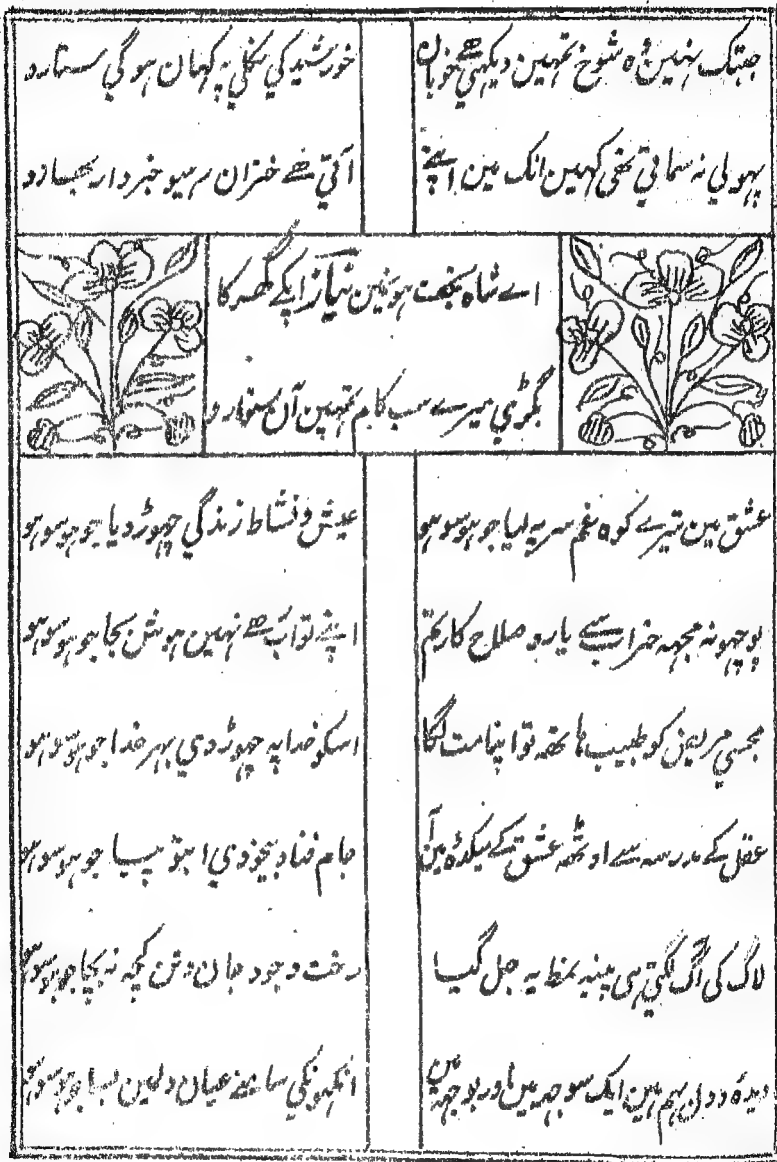 جبتک نہین وہ شوخ تمہین دیکھی ہے خوباں
خورشید کی نکلی پہ کہان ہوگی ستارو
پہولی نہ سماتی تھی کہین انک مین اپنے
آئی ہے خزان رہیو خبردار بہارو
اے شاہ نجف ہونمین نیاز آپکے گھر کا
بگڑی میرے سب کام تمہین آن سنوارو
عشق مین تیرے کوہ غم سر پہ لیا جو ہو سو ہو
عیش و نشاط زندگی چہوڑ دیا جو ہو سو ہو
پوچہو نہ مجہہ خراب سے یارو صلاح کار تم
اپنے تو اب ہے نہین ہوش بجا جو ہو سو ہو
مجسی مریض کو طبیب ہاتھہ تو اپنا مت لگا
اسکو خدا پہ چہوڑ دی بہر خدا جو ہو سو ہو
عقل کے مدرسہ سے اوٹھہ عشق کے میکدہ مین آ
جام فنا و بیخودی ابتو پیا جو ہو سو ہو
لاگ کی آگ لگتی ہی پنبہ نمط یہ جل گیا
رخت وجود جان و تن کچہ نہ بچا جو ہو سو ہو
دیدہ و دل بہم ہین ایک سوجہہ مین اور بوجہہ مین
انکہونکی سامنے عیان دلمین بسا جو ہو سو ہو